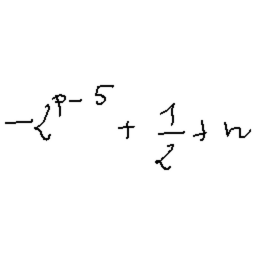 -2^{p-5} + \frac{1}{2} + n